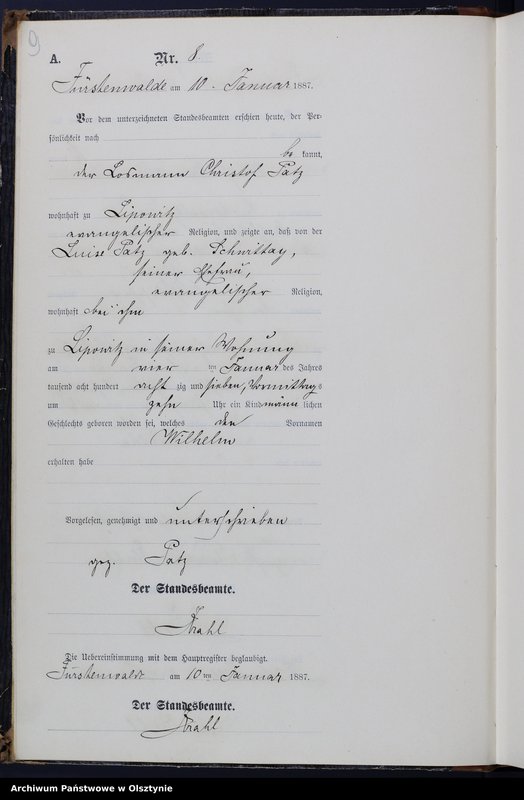 9
A. Nr. 8.
Fürstenwalde am 10. Januar 1887.
Vor dem unterzeichneten Standesbeamten erschien heute, der Per-
sönlichkeit nach
be kannt,
der Losmann Christof Patz
wohnhaft zu Lipowitz
evangelischer Religion, und zeigte an, daß von der
Luise Patz geb. Schnittay,
seiner Ehefrau,
evangelischer Religion,
wohnhaft bei ihm
zu Lipowitz in seiner Wohnung
am vier ten Januar des Jahres
tausend acht hundert acht zig und sieben, Vormittags
um zehn Uhr ein Kind männ lichen
Geschlechts geboren worden sei, welches den Vornamen
Wilhelm
erhalten habe
Vorgelesen, genehmigt und unterschrieben
gez. Patz
Der Standesbeamte.
Die Uebereinstimmung mit dem Hauptregister beglaubigt.
Fürstenwalde am 10 ten Januar 1887.
Der Standesbeamte.
Archiwum Państwowe w Olsztynie